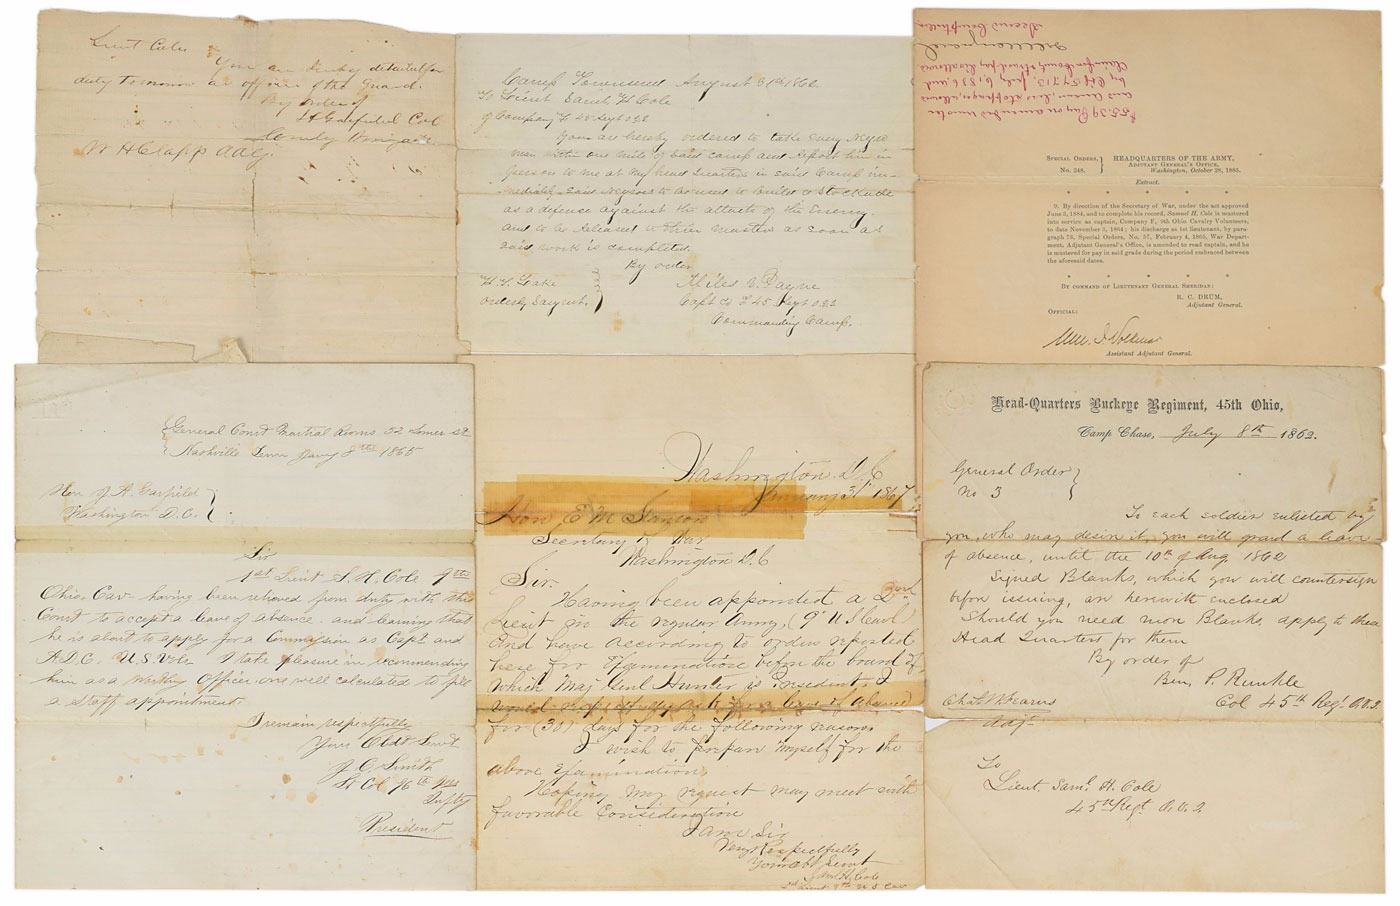 Lieut Cole
You are hereby detailed for
duty tomorrow as officer of the Guard.
By order of
Garfield Col
W H Clapp
Camp Townsend August 31st 1862.
To Lieut Saml H Cole
of Company F 45 Regt
You are hereby ordered to take every Negro
man within one mile of said camp and report him in
person to me at my head Quarters in said Camp im-
mediately said Negroes to be used to build a Stockade
as a defense against the attack of the Enemy.
and to be Released to their masters as soon as
said work is completed.
By order
Orderly
Payne
Capt 45 Regt
Commanding Camp.
$55.39 Pay on amended muster
Second Comptroller
Special Orders, No. 248.
HEADQUARTERS OF THE ARMY,
Adjutant General's Office,
Washington, October 28, 1885.
Extract.
* * * * *
9. By direction of the Secretary of War, under the act approved
June 3, 1884, and to complete his record, Samuel H. Cole is mustered
into service as captain, Company F, 9th Ohio Cavalry Volunteers,
to date November 3, 1864; his discharge as 1st lieutenant, by para-
graph 73, Special Orders, No. 57, February 4, 1865, War Depart-
ment, Adjutant General's Office, is amended to read captain, and he
is mustered for pay in said grade during the period embraced between
the aforesaid dates.
* * * * *
By command of Lieutenant General Sheridan:
R. C. DRUM,
Adjutant General.
Official:
Assistant Adjutant General.
General Court Martial Rooms
Nashville Tenn Jany 8th 1865
Hon J. A. Garfield
Washington D.C.
Sir
1st Lieut S. H. Cole 9th
Ohio Cav having been relieved from duty with this
Court to accept a leave of absence and learning that
he is about to apply for a Commission as Capt and
A.D.C. U.S. Vols I take pleasure in recommending
him as a worthy Officer, one well calculated to fill
a Staff appointment.
I remain respectfully
Your Obdt Servt
J C Smith
Lt Col 96th
Infty
President
Washington D.C
January 31 1867
Hon E M Stanton
Secretary of War
Washington D.C
Sir.
Having been appointed a 2nd
Lieut in the regular Army,
And have according to orders reported
here for Examination before the board of
which Maj Genl Hunter is President, I
would respectfully ask for a leave of absence
for (30) days for the following reasons
I wish to prepare myself for the
above Examination,
Hoping my request may meet with
favorable Consideration
I am Sir
Very Respectfully
Your Obt Servt
Saml H Cole
2d Lieut 9th U S Cav
Head-Quarters Buckeye Regiment, 45th Ohio,
Camp Chase, July 8th 1862.
General Order
No. 3
To each soldier enlisted by
you, who may desire it, you will grant a leave
of absence, until the 10th of Aug 1862
Signed Blanks, which you will countersign
before issuing, are herewith enclosed
Should you need more Blanks, apply to these
Head Quarters for them
By order of
Ben. P. Runkle
Col 45th Regt O.V.I.
Adjt
To
Lieut. Saml. H. Cole
45th Regt O.V.I.